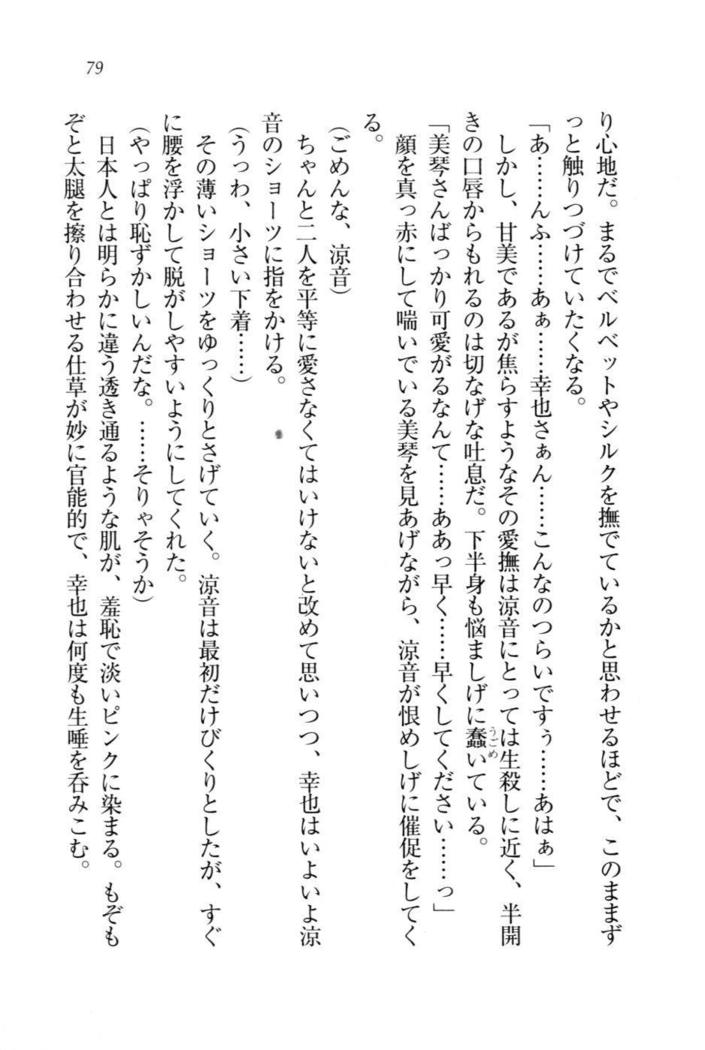 79
り心地だ。まるでベルベットやシルクを撫でているかと思わせるほどで、このままず
っと触りつづけていたくなる。
「あ……んふ……あぁ……幸也さぁん……こんなのつらいですぅ……あはぁ」
しかし、甘美であるが焦らすようなその愛撫は涼音にとっては生殺しに近く、半開
きの口唇からもれるのは切なげな吐息だ。下半身も悩ましげに蠢いている。
「美琴さんばっかり可愛がるなんて……ああっ早く……早くしてください……っ」
顔を真っ赤にして喘いでいる美琴を見あげながら、涼音が恨めしげに催促をしてく
る。
(ごめんな、涼音)
ちゃんと二人を平等に愛さなくてはいけないと改めて思いつつ、幸也はいよいよ涼
音のショーツに指をかける。
(うっわ、小さい下着……)
その薄いショーツをゆっくりとさげていく。涼音は最初だけびくりとしたが、すぐ
に腰を浮かして脱がしやすいようにしてくれた。
(やっぱり恥ずかしいんだな。……そりゃそうか)
日本人とは明らかに違う透き通るような肌が、羞恥で淡いピンクに染まる。もぞも
ぞと太腿を擦り合わせる仕草が妙に官能的で、幸也は何度も生唾を呑みこむ。
うごめ